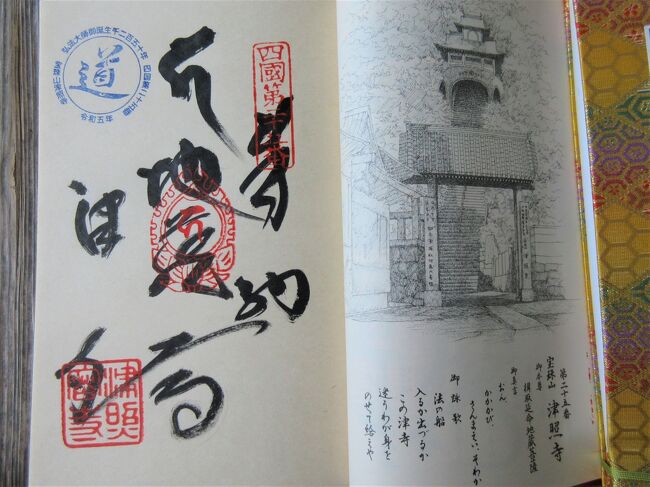 四國第二十五番
奉納
地蔵尊
津寺
弘法大師御誕生千二百五十年 四国第二十五番
道
令和五年
第二十五番
宝珠山 津照寺
御本尊 楫取延命地蔵菩薩
御真言
おん、
かかかび、
さんまえい、そわか
御詠歌
法の船
入るか出づるか
この津寺
迷うわが身を
のせて給えや